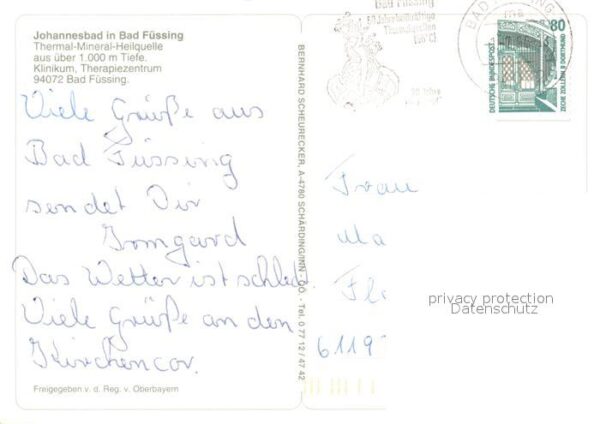 Johannesbad in Bad Füssing
Thermal-Mineral-Heilquelle
aus über 1.000 m Tiefe.
Klinikum, Therapiezentrum
94072 Bad Füssing.
Viele Grüße aus
Bad Füssing
sendet Dir
Irmgard
Das Wetter ist schlech.
Viele Grüße an den
Kirchencor.
Freigegeben v. d. Reg. v. Oberbayern
BERNHARD SCHEURECKER, A-4780 SCHÄRDING/INN - OÖ. - Tel. 0 77 12 / 47 42
Bad Füssing
50 Jahre
Thermalquellen
(56°C)
BAD FÜSSING
80
DEUTSCHE BUNDESPOST
Frau
Ma
Fl
6119
privacy protection
Datenschutz